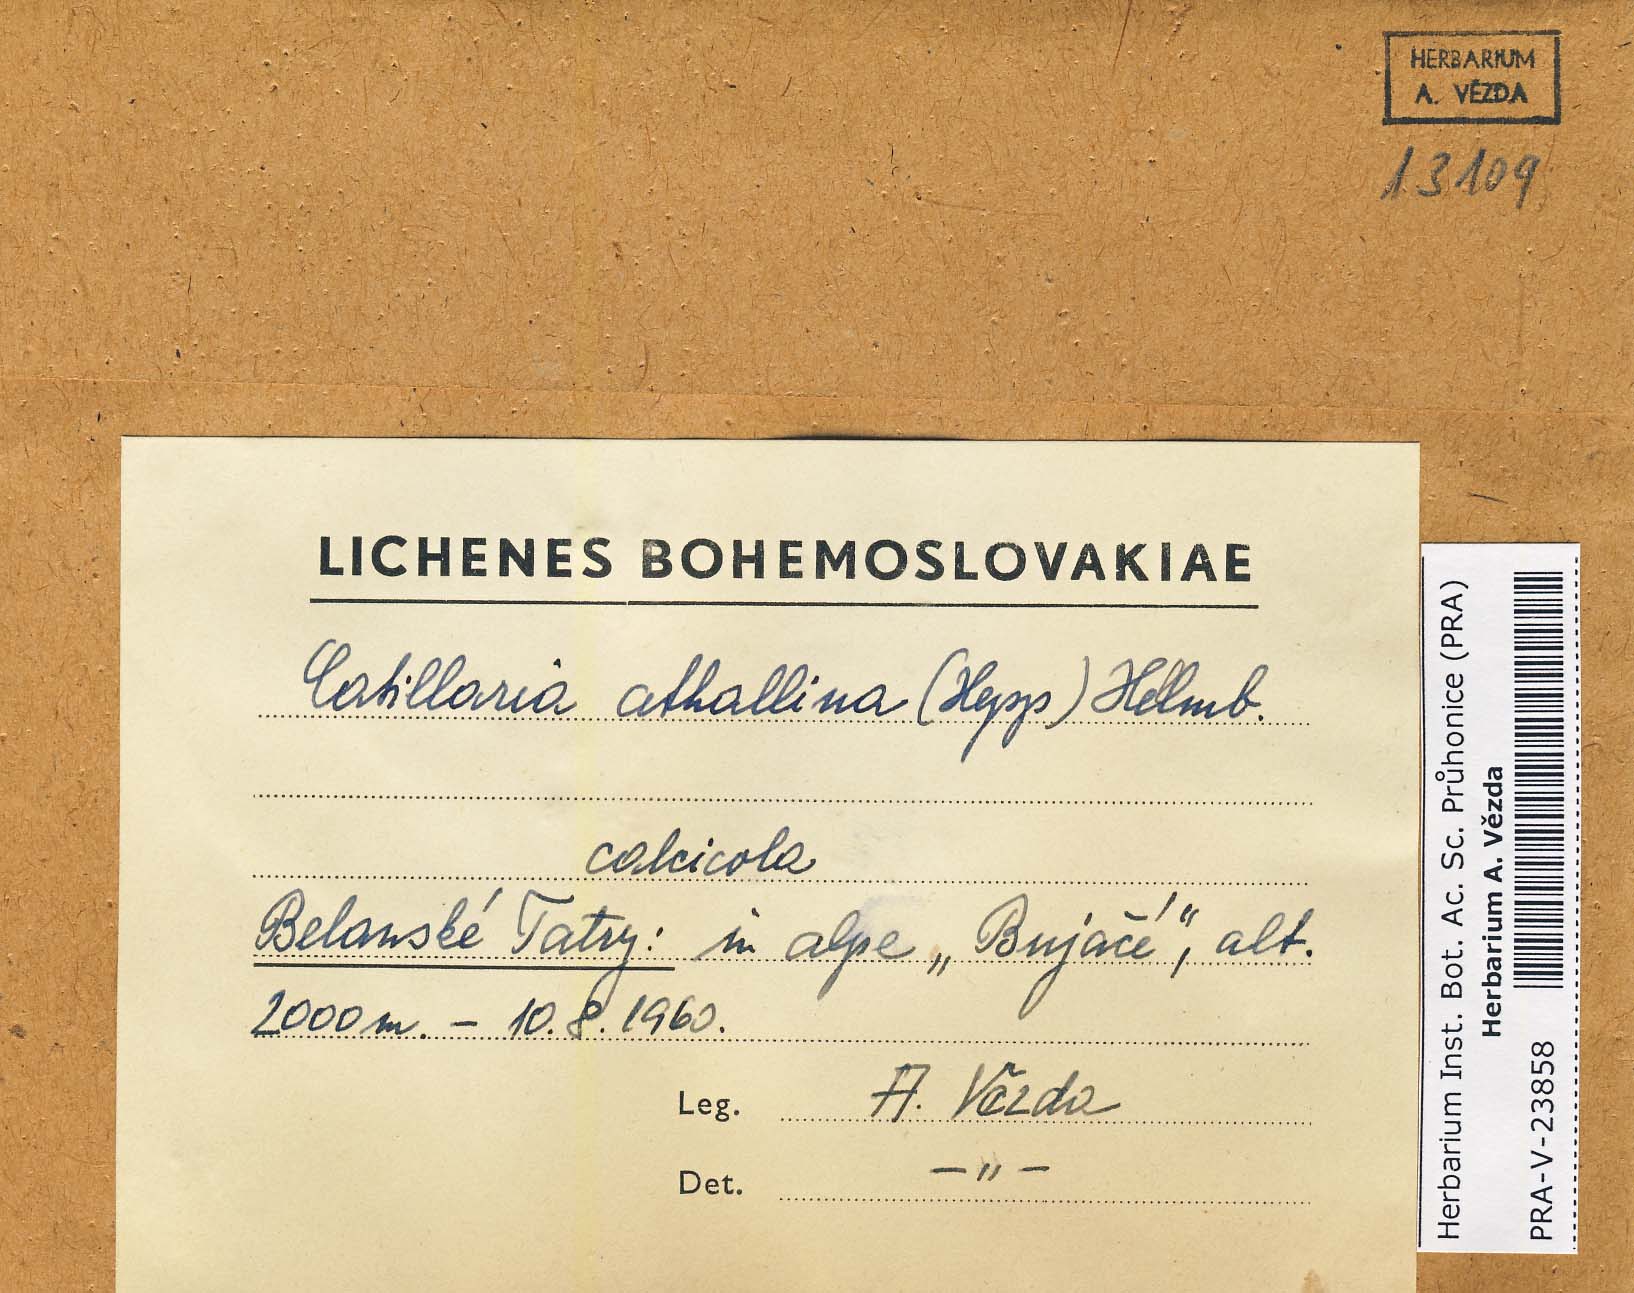 HERBARIUM
A. VĚZDA
13109
LICHENES BOHEMOSLOVAKIAE
Catillaria athallina (Hepp) Hellmb.
calcicola
Belanské Tatry: in alpe „Bujačé“, alt.
2000 m. – 10. 8. 1960.
Leg. A. Vězda
Det. –〃–
Herbarium Inst. Bot. Ac. Sc. Průhonice (PRA)
Herbarium A. Vězda
PRA-V-23858